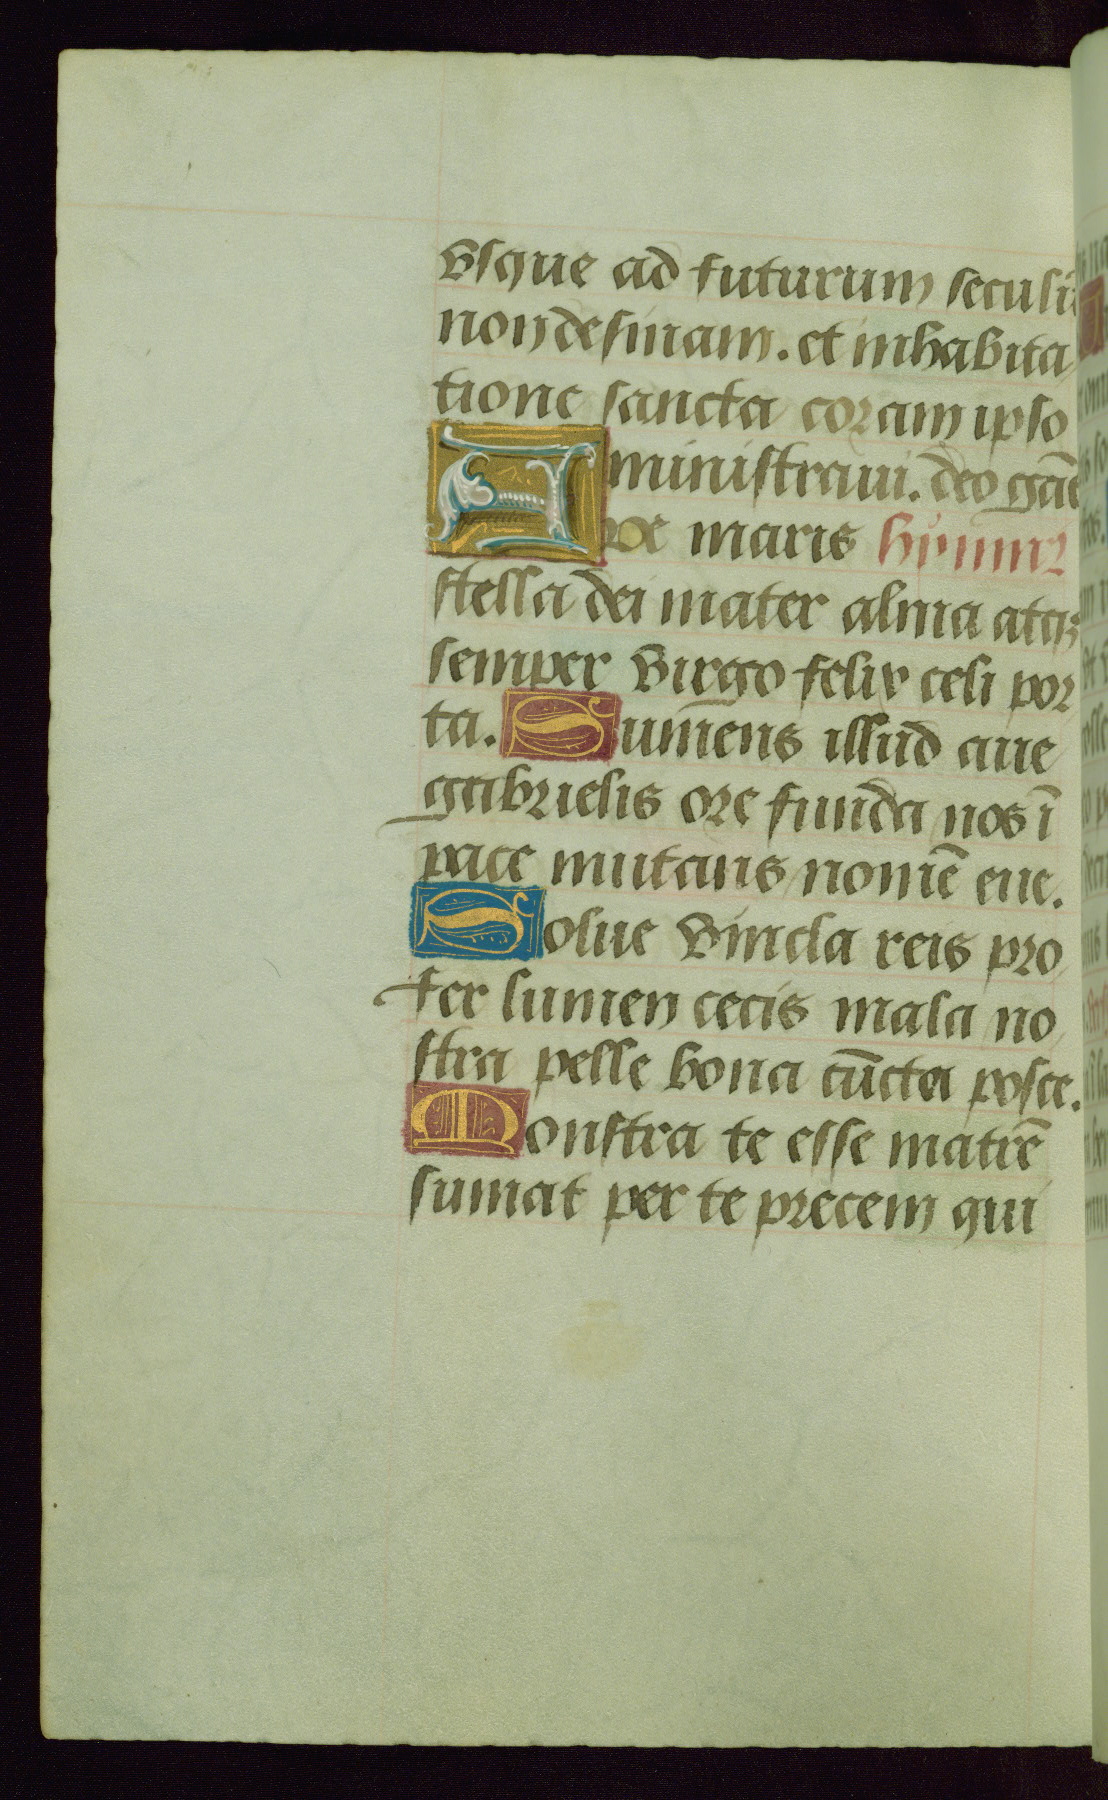 vsque ad futurum seculū
non desinam. et in habita
tione sancta coram ipso
ministraui. deo grãs
Aue maris hymnꝰ
stella dei mater alma atqꝫ
semper virgo felix celi por
ta. Sumens illud aue
gabrielis ore funda nos ī
pace mutans nomē eue.
Solue vincla reis pro
fer lumen cecis mala no
stra pelle bona cūcta posce.
Monstra te esse matrē
sumat per te precem qui